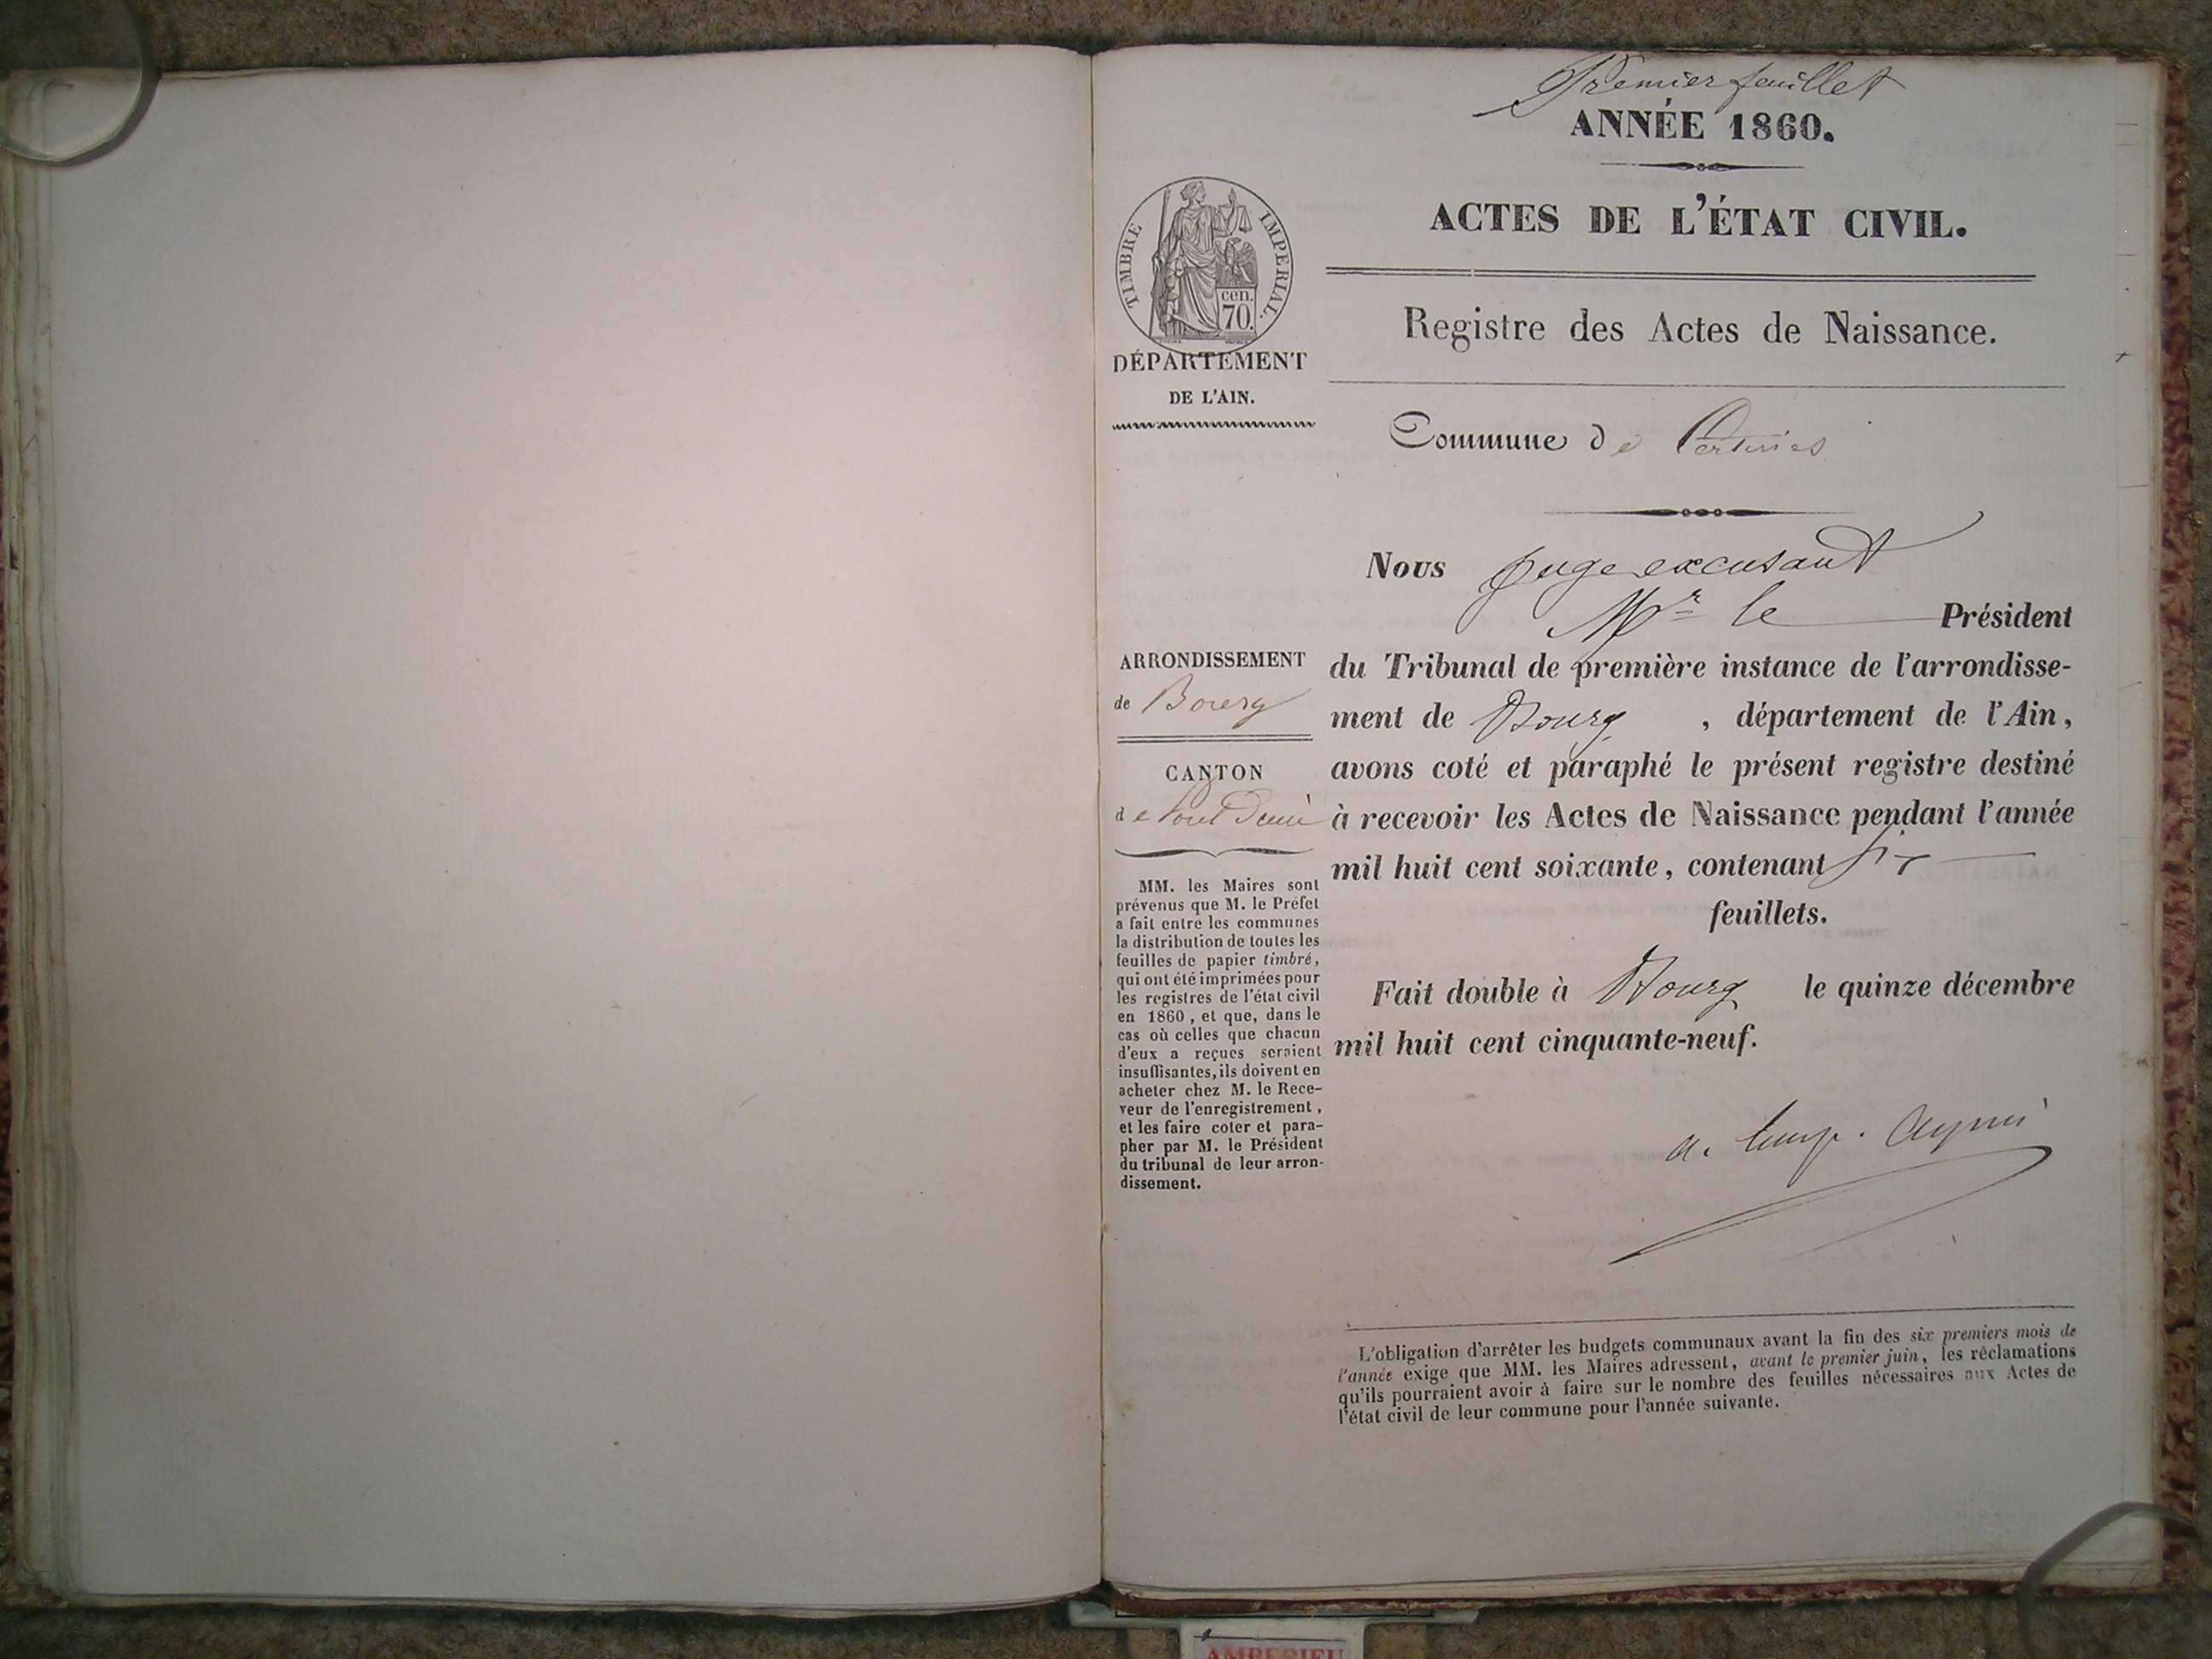 Premier feuillet
ANNÉE 1860.
ACTES DE L'ÉTAT CIVIL.
TIMBRE IMPERIAL.
cen.
70.
Registre des Actes de Naissance.
DÉPARTEMENT
DE L'AIN.
Commune de Certines
Nous Juge excusant
Mr le Président
du Tribunal de première instance de l'arrondisse-
ment de Bourg , département de l'Ain,
avons coté et paraphé le présent registre destiné
à recevoir les Actes de Naissance pendant l'année
mil huit cent soixante, contenant six
feuillets.
Fait double à Bourg le quinze décembre
mil huit cent cinquante-neuf.
ARRONDISSEMENT
de Bourg
CANTON
de Pont Dain
MM. les Maires sont
prévenus que M. le Préfet
a fait entre les communes
la distribution de toutes les
feuilles de papier timbré,
qui ont été imprimées pour
les registres de l'état civil
en 1860, et que, dans le
cas où celles que chacun
d'eux a reçues seraient
insuffisantes, ils doivent en
acheter chez M. le Rece-
veur de l'enregistrement,
et les faire coter et para-
pher par M. le Président
du tribunal de leur arron-
dissement.
L'obligation d'arrêter les budgets communaux avant la fin des six premiers mois de
l'année exige que MM. les Maires adressent, avant le premier juin, les réclamations
qu'ils pourraient avoir à faire sur le nombre des feuilles nécessaires aux Actes de
l'état civil de leur commune pour l'année suivante.
AMBERIEU